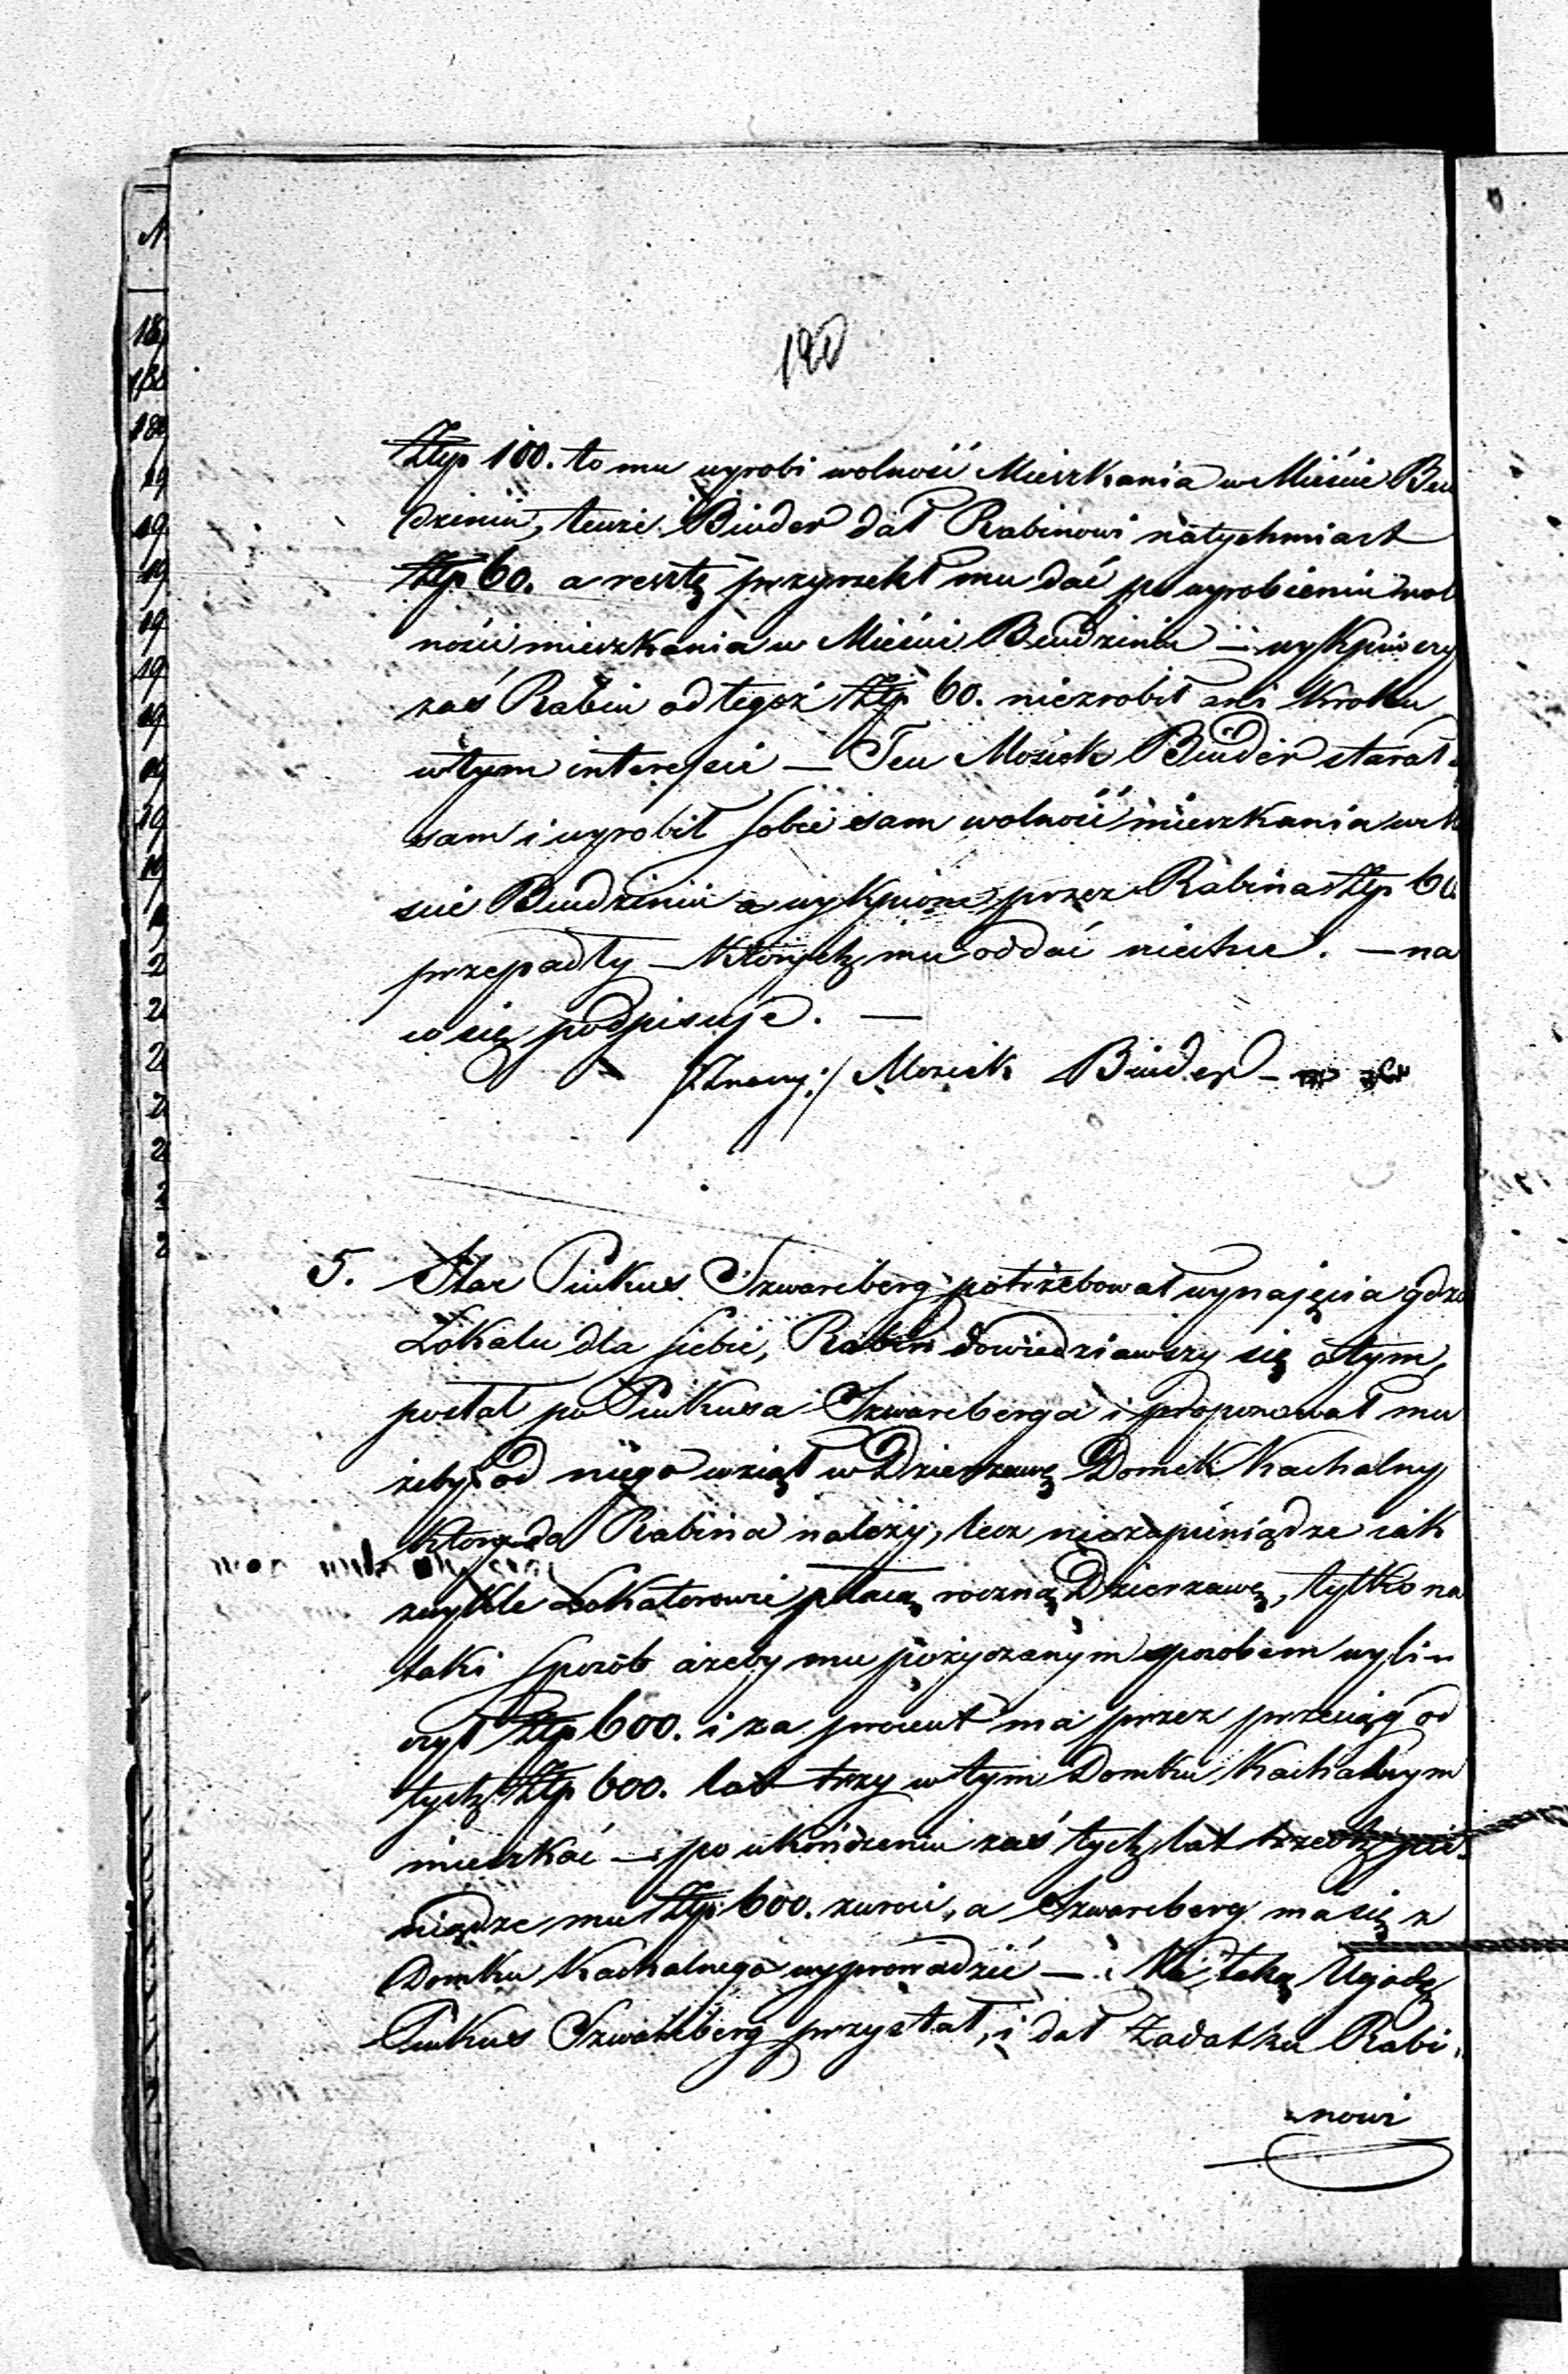 190
Złp 100. to mu wyrobi wolność Mieszkania w Mieście Ben
dzinie, tenże Binder dał Rabinowi natychmiast
Złp 60. a resztę przyrzekł mu dać po wyrobieniu wol
ności mieszkania w Mieście Bendzinie — wykpiwszy
zaś Rabin od tegoż Złp 60. niezrobił ani kroku
w tym interesie — Ten Mosiek Binder starał
sam i wyrobił sobie sam wolność mieszkania w
ście Bendzinie a wykpione przez Rabina Złp 60
przepadły — których mu oddać niechce. — na
co się podpisuje. —
/:Znany:/ Mosiek Binder —
5. Star Pinkus Szwarcberg potrzebował wynajęcia
Lokalu dla siebie, Rabin dowiedziawszy się o tym,
posłał po Pinkusa Szwarcberga i proponował mu
żeby od niego wziął w Dzierzawę Domek Kachalny
który do Rabina należy, lecz nie za pieniądze iak
zwykle Lokatorowie płacą roczną Dzierzawę, tylko na
taki sposób ażeby mu pożyczanym sposobem wyli
czył Złp 600. i za procent ma przez przeciąg od
tych Złp 600. lat trzy w tym Domku Kachalnym
mieszkać — po ukończeniu zaś tych lat trzech pie
niądze mu Złp 600. zwróci, a Szwarcberg ma się z
Domku Kachalnego wyprowadzić — Na taką Ugodę
Pinkus Szwarcberg przystał, i dał Zadatku Rabi
nowi